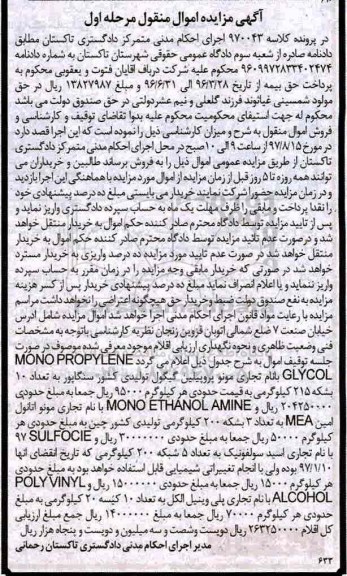 آگهی مزایده اموال منقول مرحله اول
در پرونده کلاسه ۹۷۰۰۴۳ اجرای احکام مدنی متمرکز دادگستری تاکستان مطابق
دادنامه صادره از شعبه سوم دادگاه عمومی حقوقی شهرستان تاکستان به شماره دادنامه
۹۶۰۹۹۷۲۸۳۳۴۰۲۴۷۴ محکوم علیه شرکت درباف اقایان فتوت و یعقوبی محکوم به
پرداخت حق بیمه از تاریخ ۹۶/۳/۲۸ الی ۹۶/۶/۳۱ و مبلغ ۱۳۸۲۷۹۸۷ ریال در حق
مولود شمسینی غیاثوند فرزند گلعلی و نیم عشردولتی در حق صندوق دولت می باشد
محکوم له جهت استیفای محکومیت محکوم علیه بدوا تقاضای توقیف و کارشناسی و
فروش اموال منقول به شرح و میزان کارشناسی ذیل را نموده است که این اجرا قصد دارد
در مورخ ۹۷/۸/۱۵ از ساعت ۹ الی ۱۰ صبح در محل اجرای احکام مدنی متمرکز دادگستری
تاکستان از طریق مزایده عمومی اموال ذیل را به فروش برساند طالبین و خریداران می
توانند همه روزه تا ۵ روز قبل از زمان مزایده از اموال مورد مزایده با هماهنگی این اجرا بازدید
و در زمان مزایده حضور/شرکت نمایند خریدار می بایستی مبلغ ده درصد پیشنهادی خود
را نقدا پرداخت و مابقی را ظرف مهلت یک ماه به حساب سپرده دادگستری واریز نماید و
پس از تایید مزایده توسط دادگاه محترم صادر کننده حکم اموال به خریدار منتقل خواهد
شد و درصورت عدم تائید مزایده توسط دادگاه محترم صادر کننده حکم اموال به خریدار
منتقل خواهد شد در صورت عدم تایید مورد مزایده ده درصد واریزی به خریدار مسترد
خواهد شد در صورتی که خریدار مابقی وجه مزایده را در زمان مقرر به حساب سپرده
واریز ننماید و یا اعلام انصراف نماید مبلغ ده درصد پیشنهادی خریدار پس از کسر هزینه
مزایده به نفع صندوق دولت ضبط و خریدار حق هیچگونه اعتراضی را نخواهد داشت مراسم
مزایده با رعایت مواد قانون اجرای احکام مدنی اجرا خواهد شد اموال مزایده شامل ادرس
خیابان صنعت ۷ ضلع شمالی اتوبان قزوین زنجان نظریه کارشناسی باتوجه به مشخصات
فنی وضعیت ظاهری و نحوه نگهداری ارزیابی اقلام موجود معرفی شده موصوف در صورت
جلسه توقیف اموال به شرح جدول ذیل اعلام می گردد MONO PROPYLENE
GLYCOL بانام تجاری مونو پروپیلین گلیکول تولیدی کشور سنگاپور به تعداد ۱۰
بشکه ۲۱۵ کیلوگرمی به قیمت حدودی هر کیلوگرم ۹۵۰۰۰ ریال جمعا به مبلغ حدودی
۲۰۴۲۵۰۰۰۰ ریال و MONO ETHANOL AMINE با نام تجاری مونو اتانول
امین MEA به تعداد ۳ بشکه ۲۰۰ کیلوگرمی تولیدی کشور چین به مبلغ حدودی هر
کیلوگرم ۵۰۰۰۰ ریال جمعا به مبلغ حدودی ۳۰۰۰۰۰۰۰ ریال و 97 SULFOCIE
با نام تجاری اسید سولفونیک به تعداد ۵ شبکه ۲۰۰ کیلوگرمی که تاریخ انقضای انها
۹۷/۱/۱۰ بوده ولی با انجام تغییراتی شیمیایی قابل استفاده خواهد بود به مبلغ حدودی
هر کیلوگرم ۱۵۰۰۰ ریال جمعا به مبلغ حدودی ۱۵۰۰۰۰۰۰ ریال و POLY VINYL
ALCOHOL با نام تجاری پلی وینیل الکل به تعداد ۱۰ کیسه ۲۰ کیلوگرمی به مبلغ
حدودی هر کیلوگرم ۷۰۰۰۰ ریال جمعا به مبلغ ۱۴۰۰۰۰۰۰ ریال جمع مبلغ ارزیابی
کل اقلام ۲۶۳۲۵۰۰۰۰ ریال دویست وشصت و سه میلیون و دویست و پنجاه هزار ریال
مدیر اجرای احکام مدنی دادگستری تاکستان رحمانی
۶۳۳